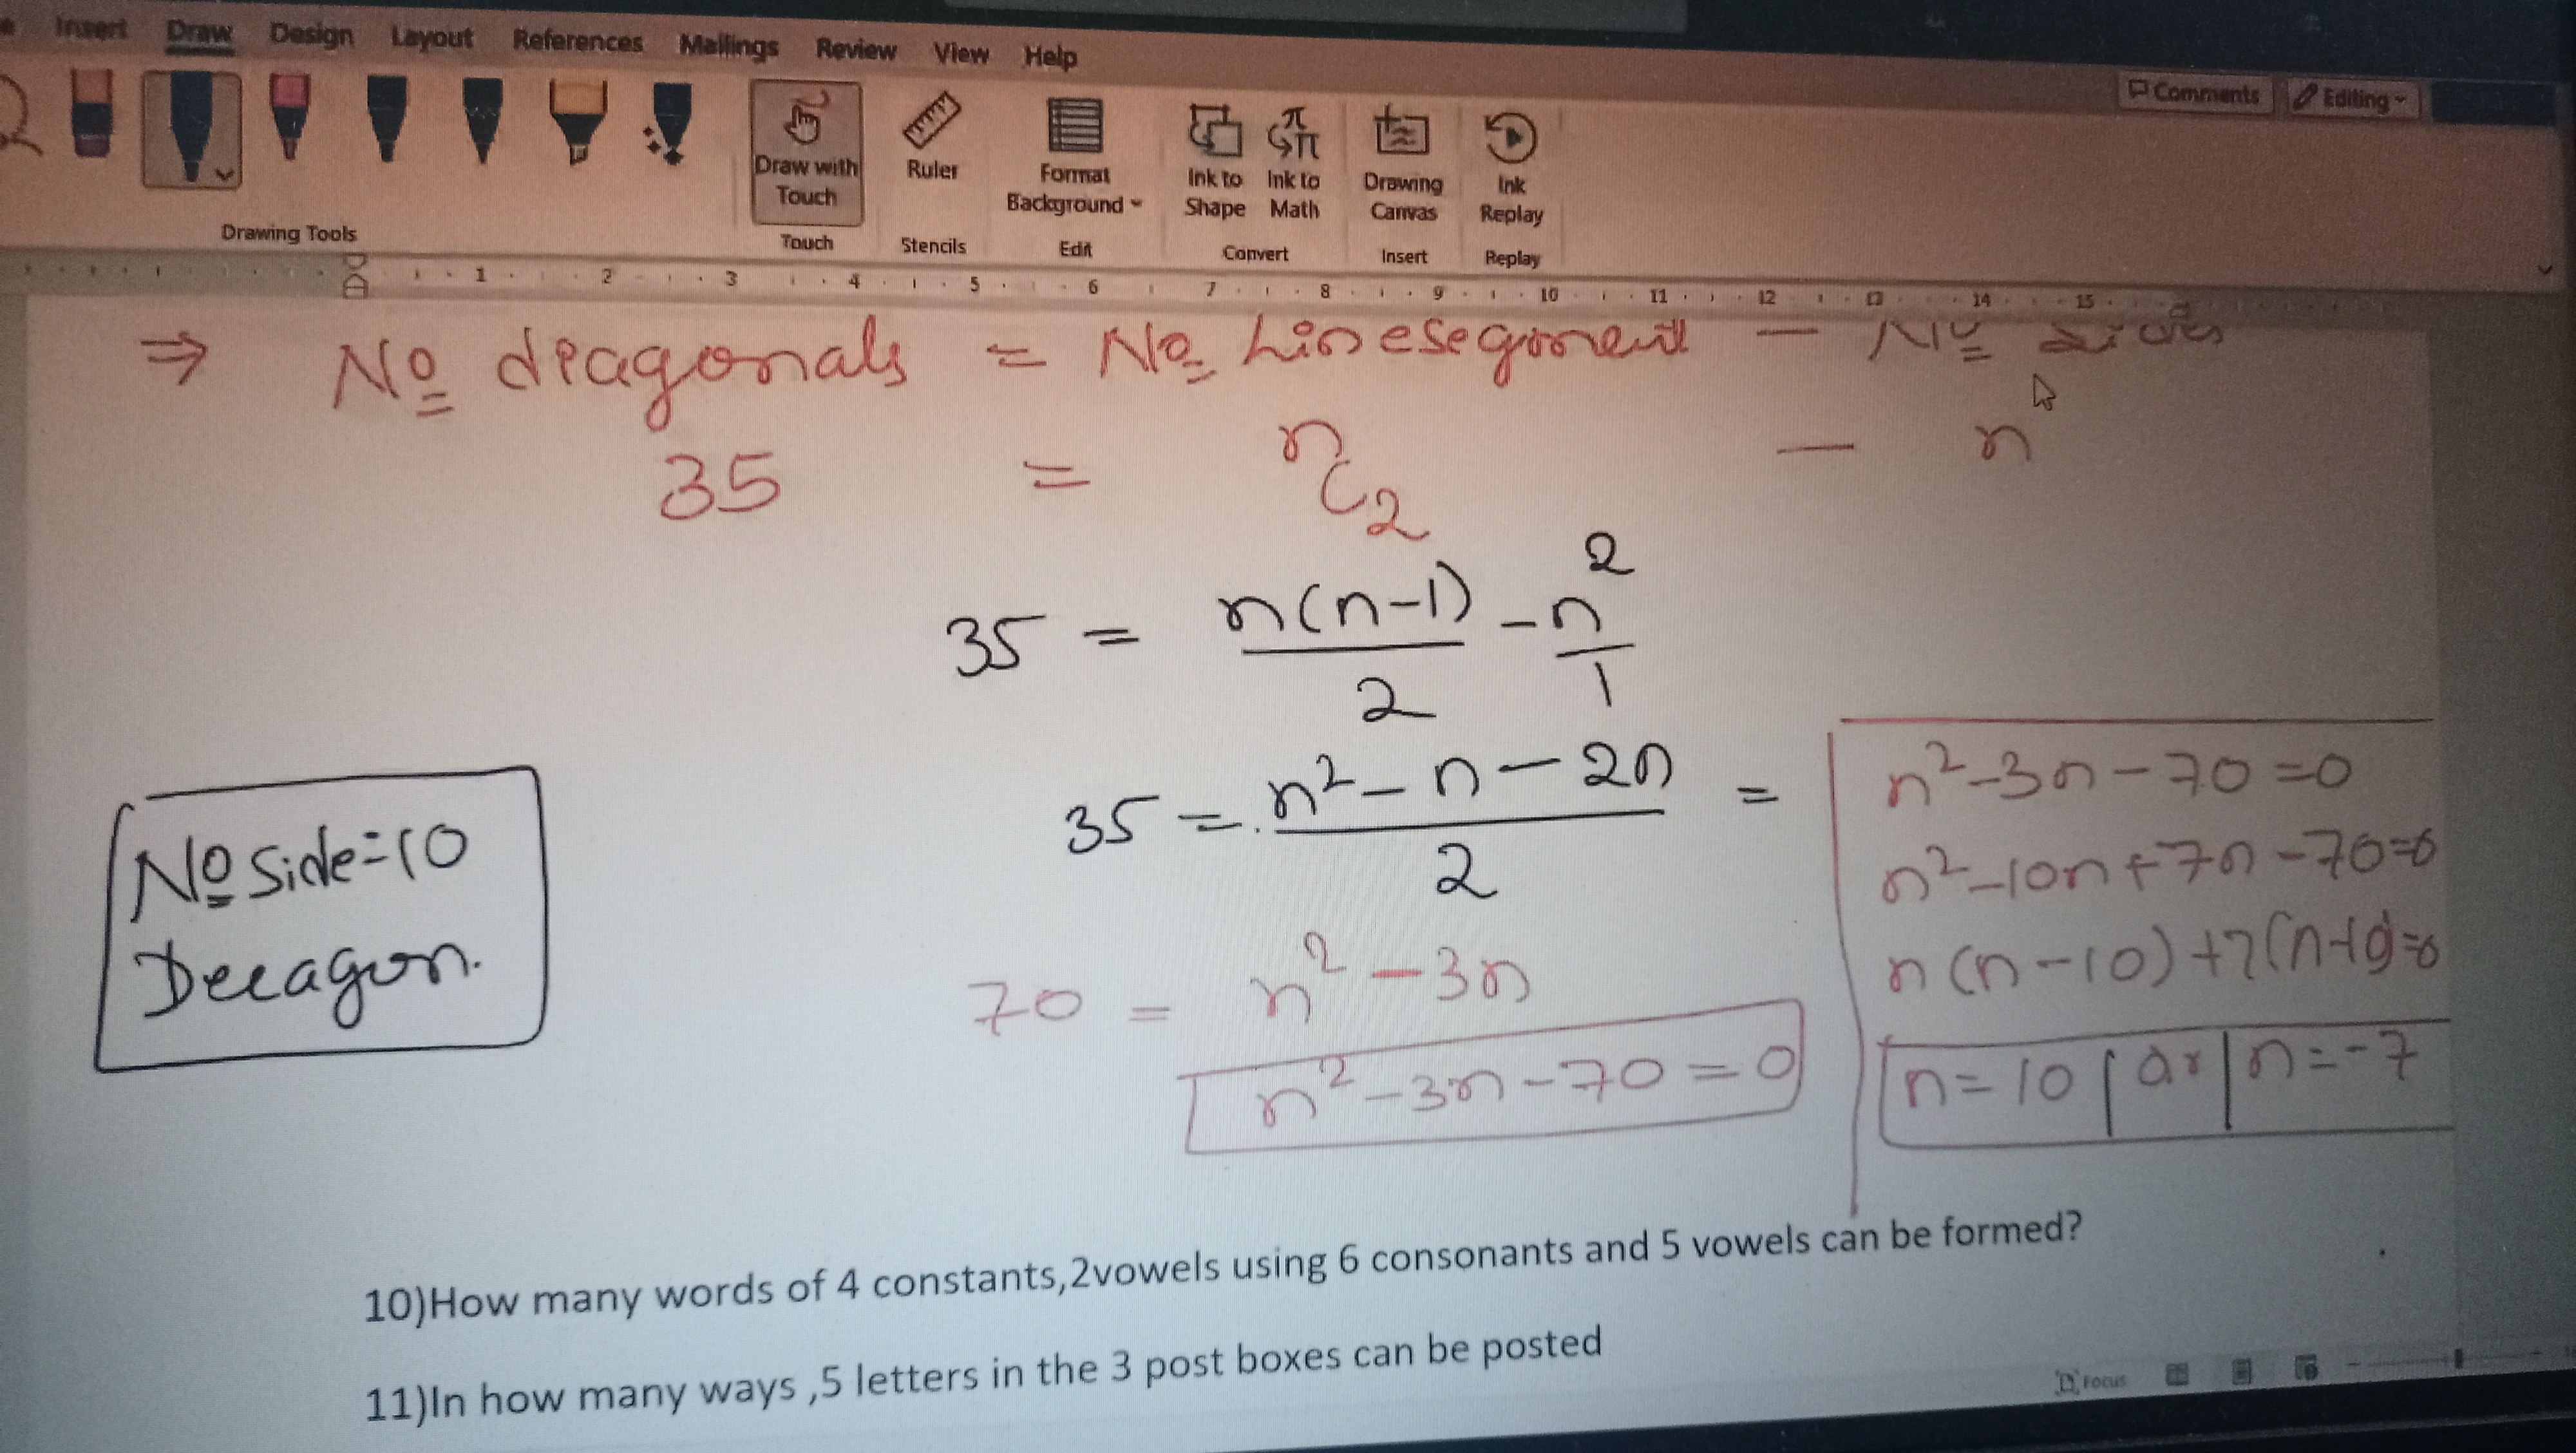 Insert Draw Design Layout References Mailings Review View Help
Comments Editing
Draw with Touch
Ruler
Format Background
Ink to Shape
Ink to Math
Drawing Canvas
Ink Replay
Drawing Tools Touch Stencils Edit Convert Insert Replay
1 2 3 4 5 6 7 8 9 10 11 12 13 14 15
⇒ No diagonals = No linesegment − No sides
35 = nC2 − n
35 = n(n-1)/2 − n/1 2
35 = n² − n − 2n / 2 =
70 = n² − 3n
n² − 3n − 70 = 0
No Side = 10
Decagon.
n² − 3n − 70 = 0
n² − 10n + 7n − 70 = 0
n(n − 10) + 7(n − 10) = 0
n = 10 | or | n = −7
10)How many words of 4 constants,2vowels using 6 consonants and 5 vowels can be formed?
11)In how many ways ,5 letters in the 3 post boxes can be posted
Focus